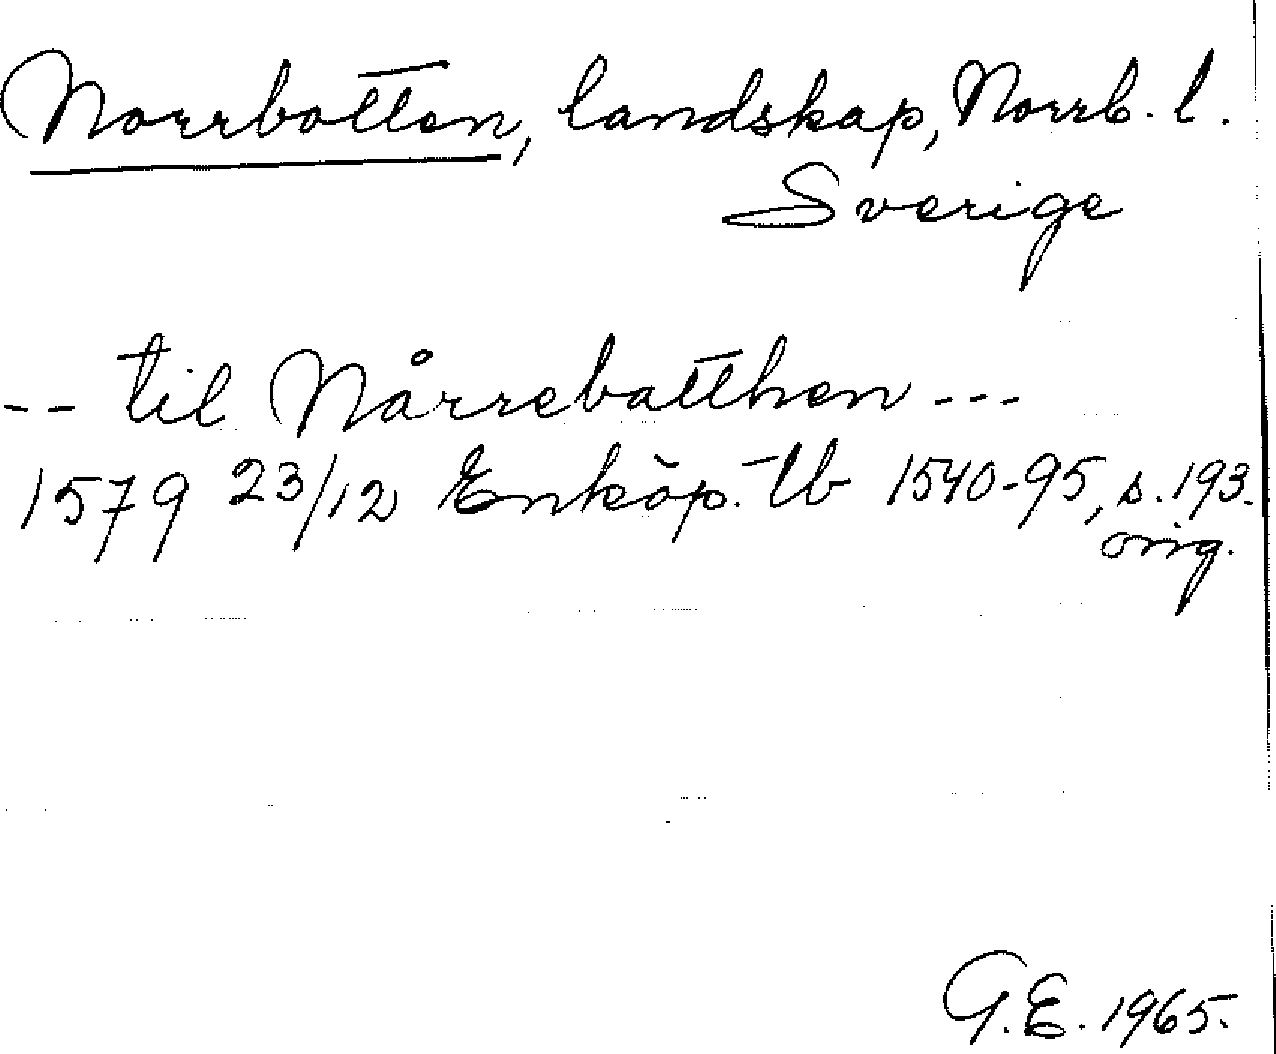 Norrbotten, landskap, Norrb. l.
Sverige
-- til Nårrebatthen ---
1579 23/12 Enköp. Tb 1540-95, s. 193.
orig.
G.E. 1965.